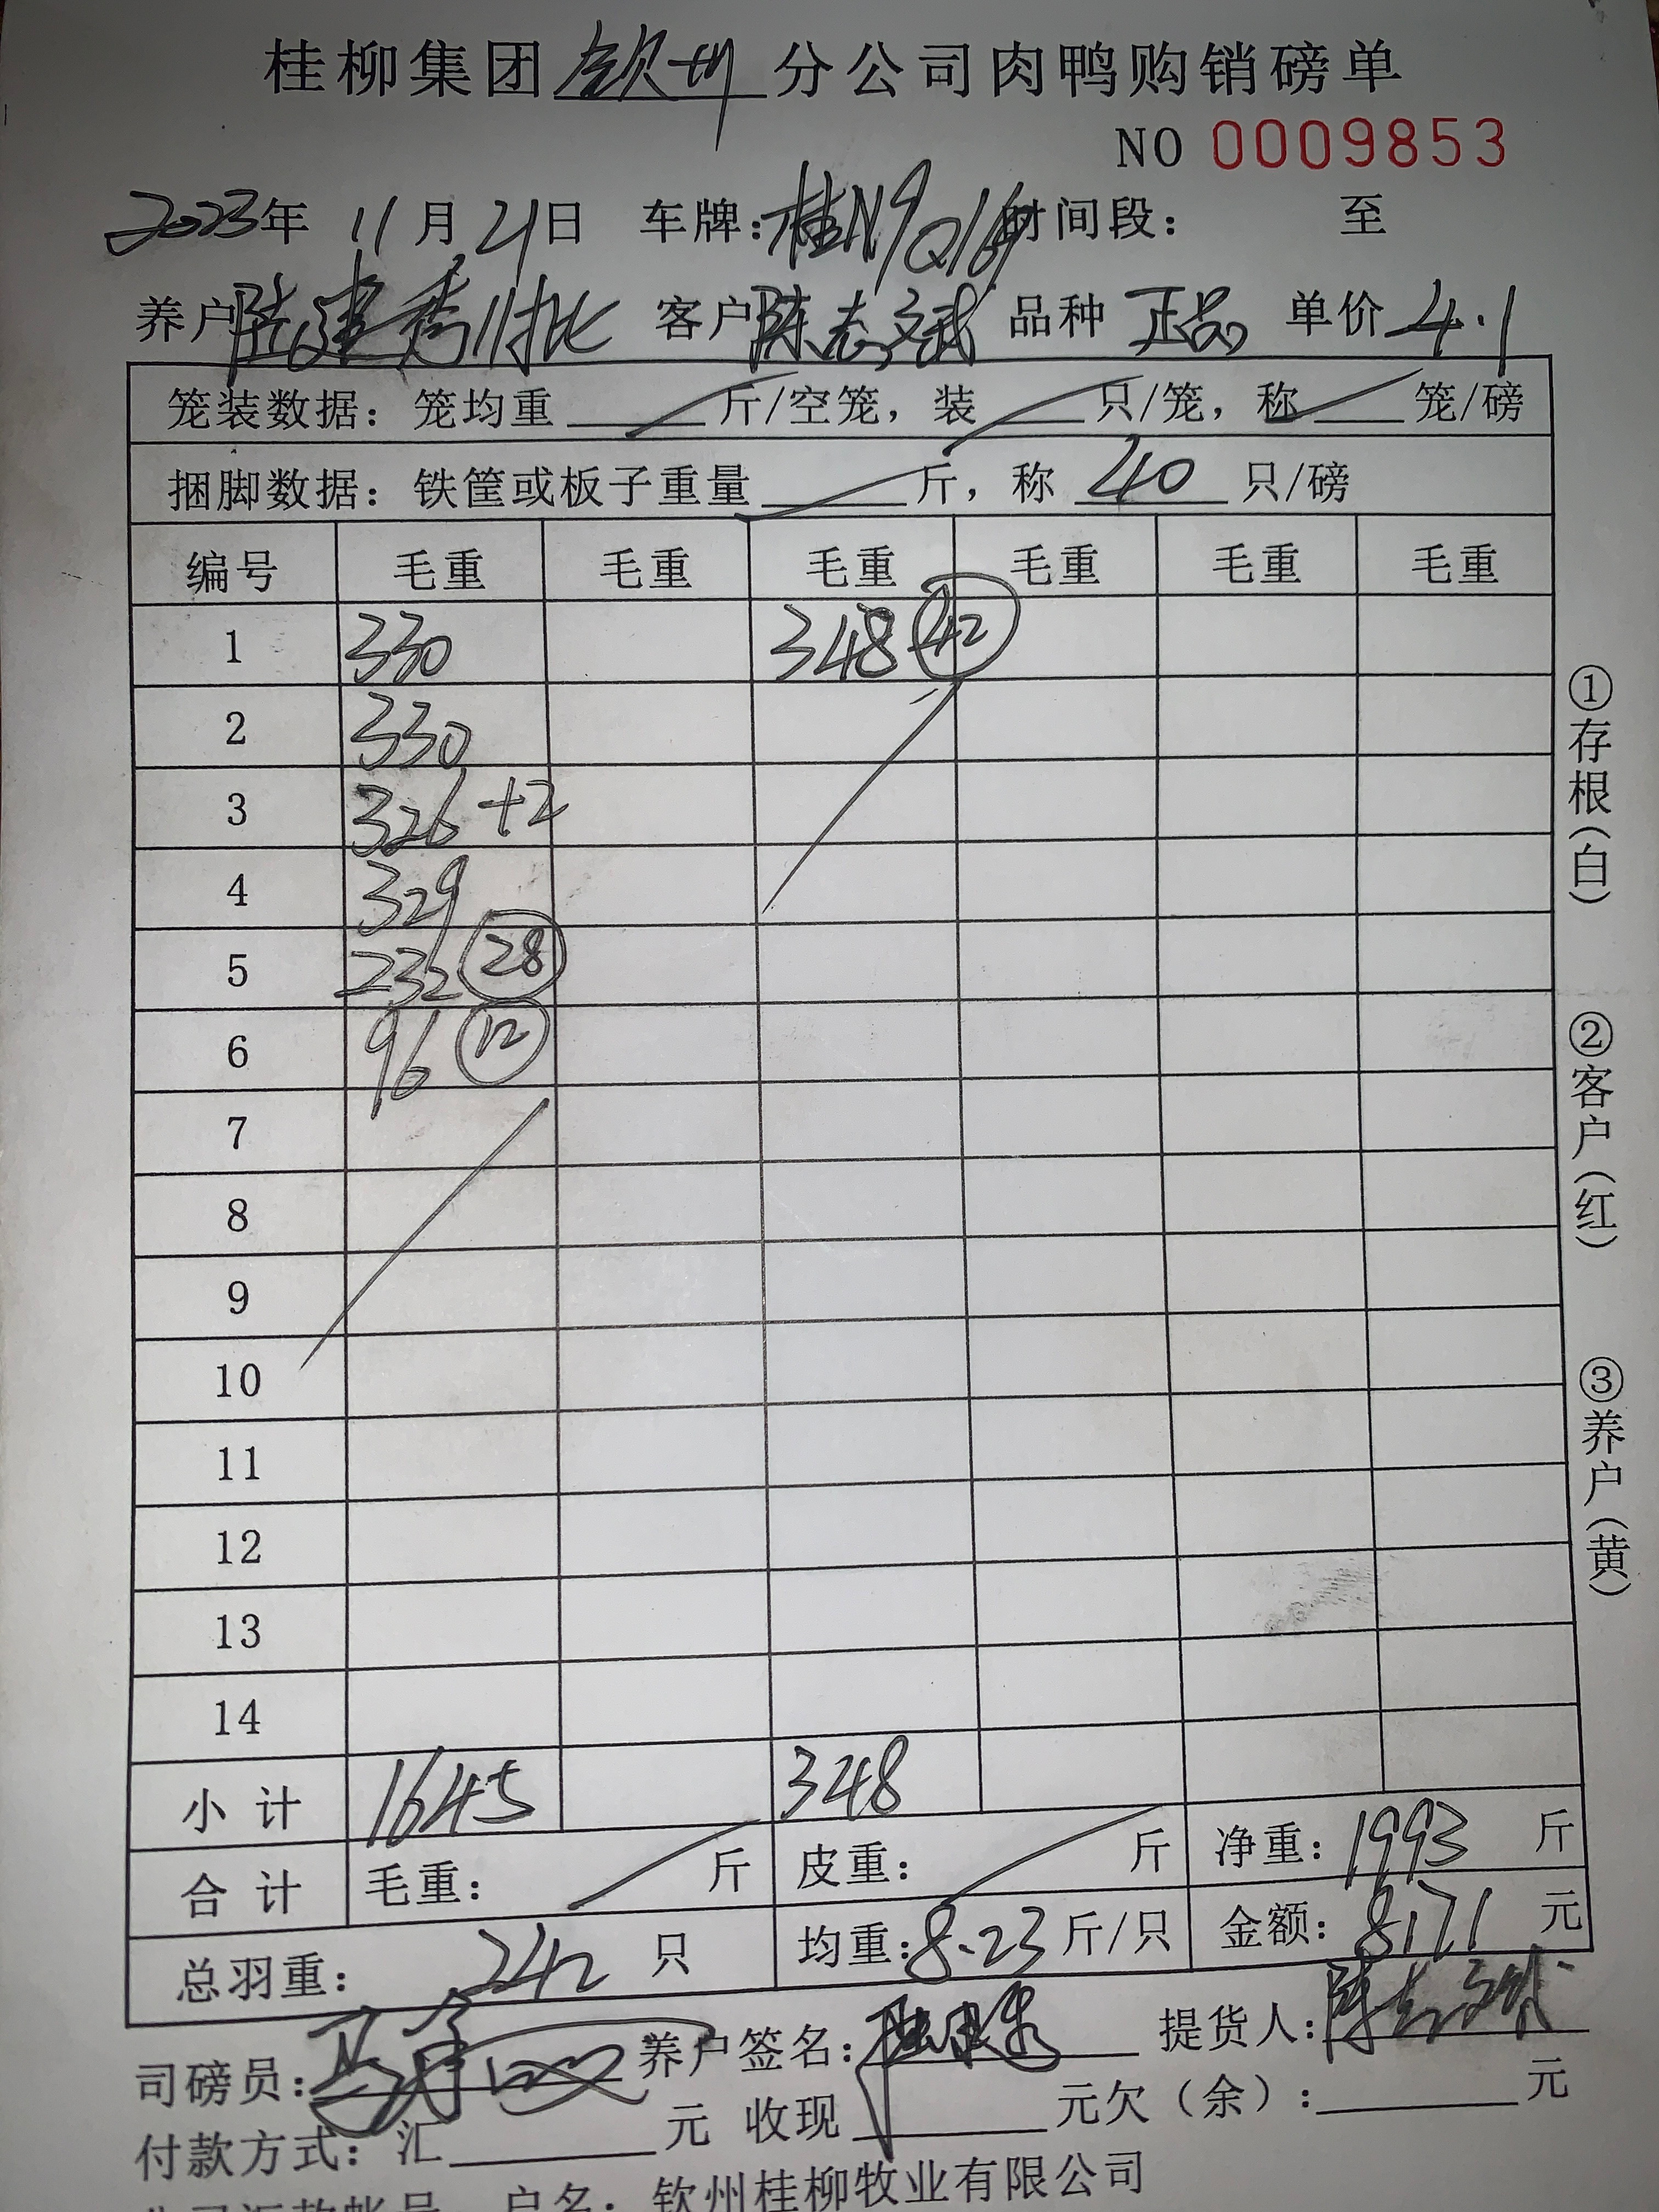 桂柳集团钦州分公司肉鸭购销磅单
NO 0009853
2023年 11月21日 车牌:桂N9Q169时间段: 至
养户 建秀11批 客户陈志斌 品种 正品 单价 4.1
笼装数据: 笼均重 斤/空笼, 装 只/笼, 称 笼/磅
捆脚数据: 铁筐或板子重量 斤, 称 40 只/磅
编号 毛重 毛重 毛重 毛重 毛重 毛重
1 330 348 42
2 330
3 326 +2
4 329
5 232 28
6 96 12
7
8
9
10
11
12
13
14
小计 1645 348
合计 毛重: 斤 皮重: 斤 净重: 1993 斤
总羽重: 242 只 均重: 8.23 斤/只 金额: 8171 元
司磅员: 养户签名: 提货人: 陈志斌
付款方式: 汇 元 收现 元欠(余): 元
户名: 钦州桂柳牧业有限公司
①存根(白)
②客户(红)
③养户(黄)